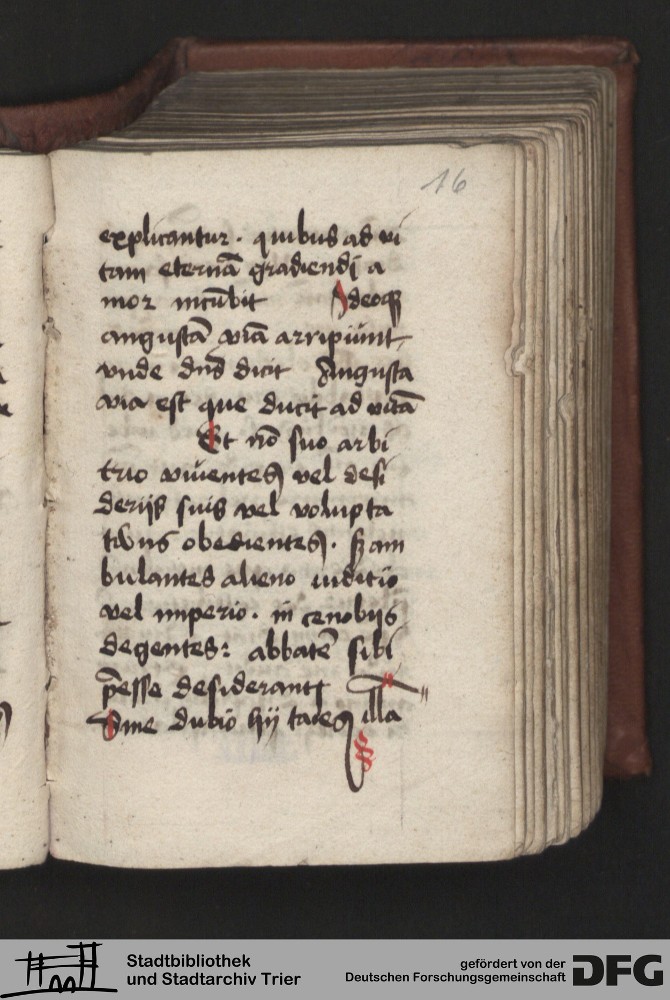 16
explicantur. quibus ad vi
tam eternã gradiendi a
mor incũbit Ideoqꝫ
angustã viã arripiunt
vnde dns dicit Angusta
via est que ducit ad vitã
Et nõ suo arbi
trio viuentes vel desi
derijs suis vel volupta
tibus obedientes. sꝫ am
bulantes alieno iuditio
vel imperio. in cenobijs
degentes: abbatẽ sibi
p̃esse desiderant
Sine dubio hij tales illa
Stadtbibliothek
und Stadtarchiv Trier
gefördert von der
Deutschen Forschungsgemeinschaft
DFG